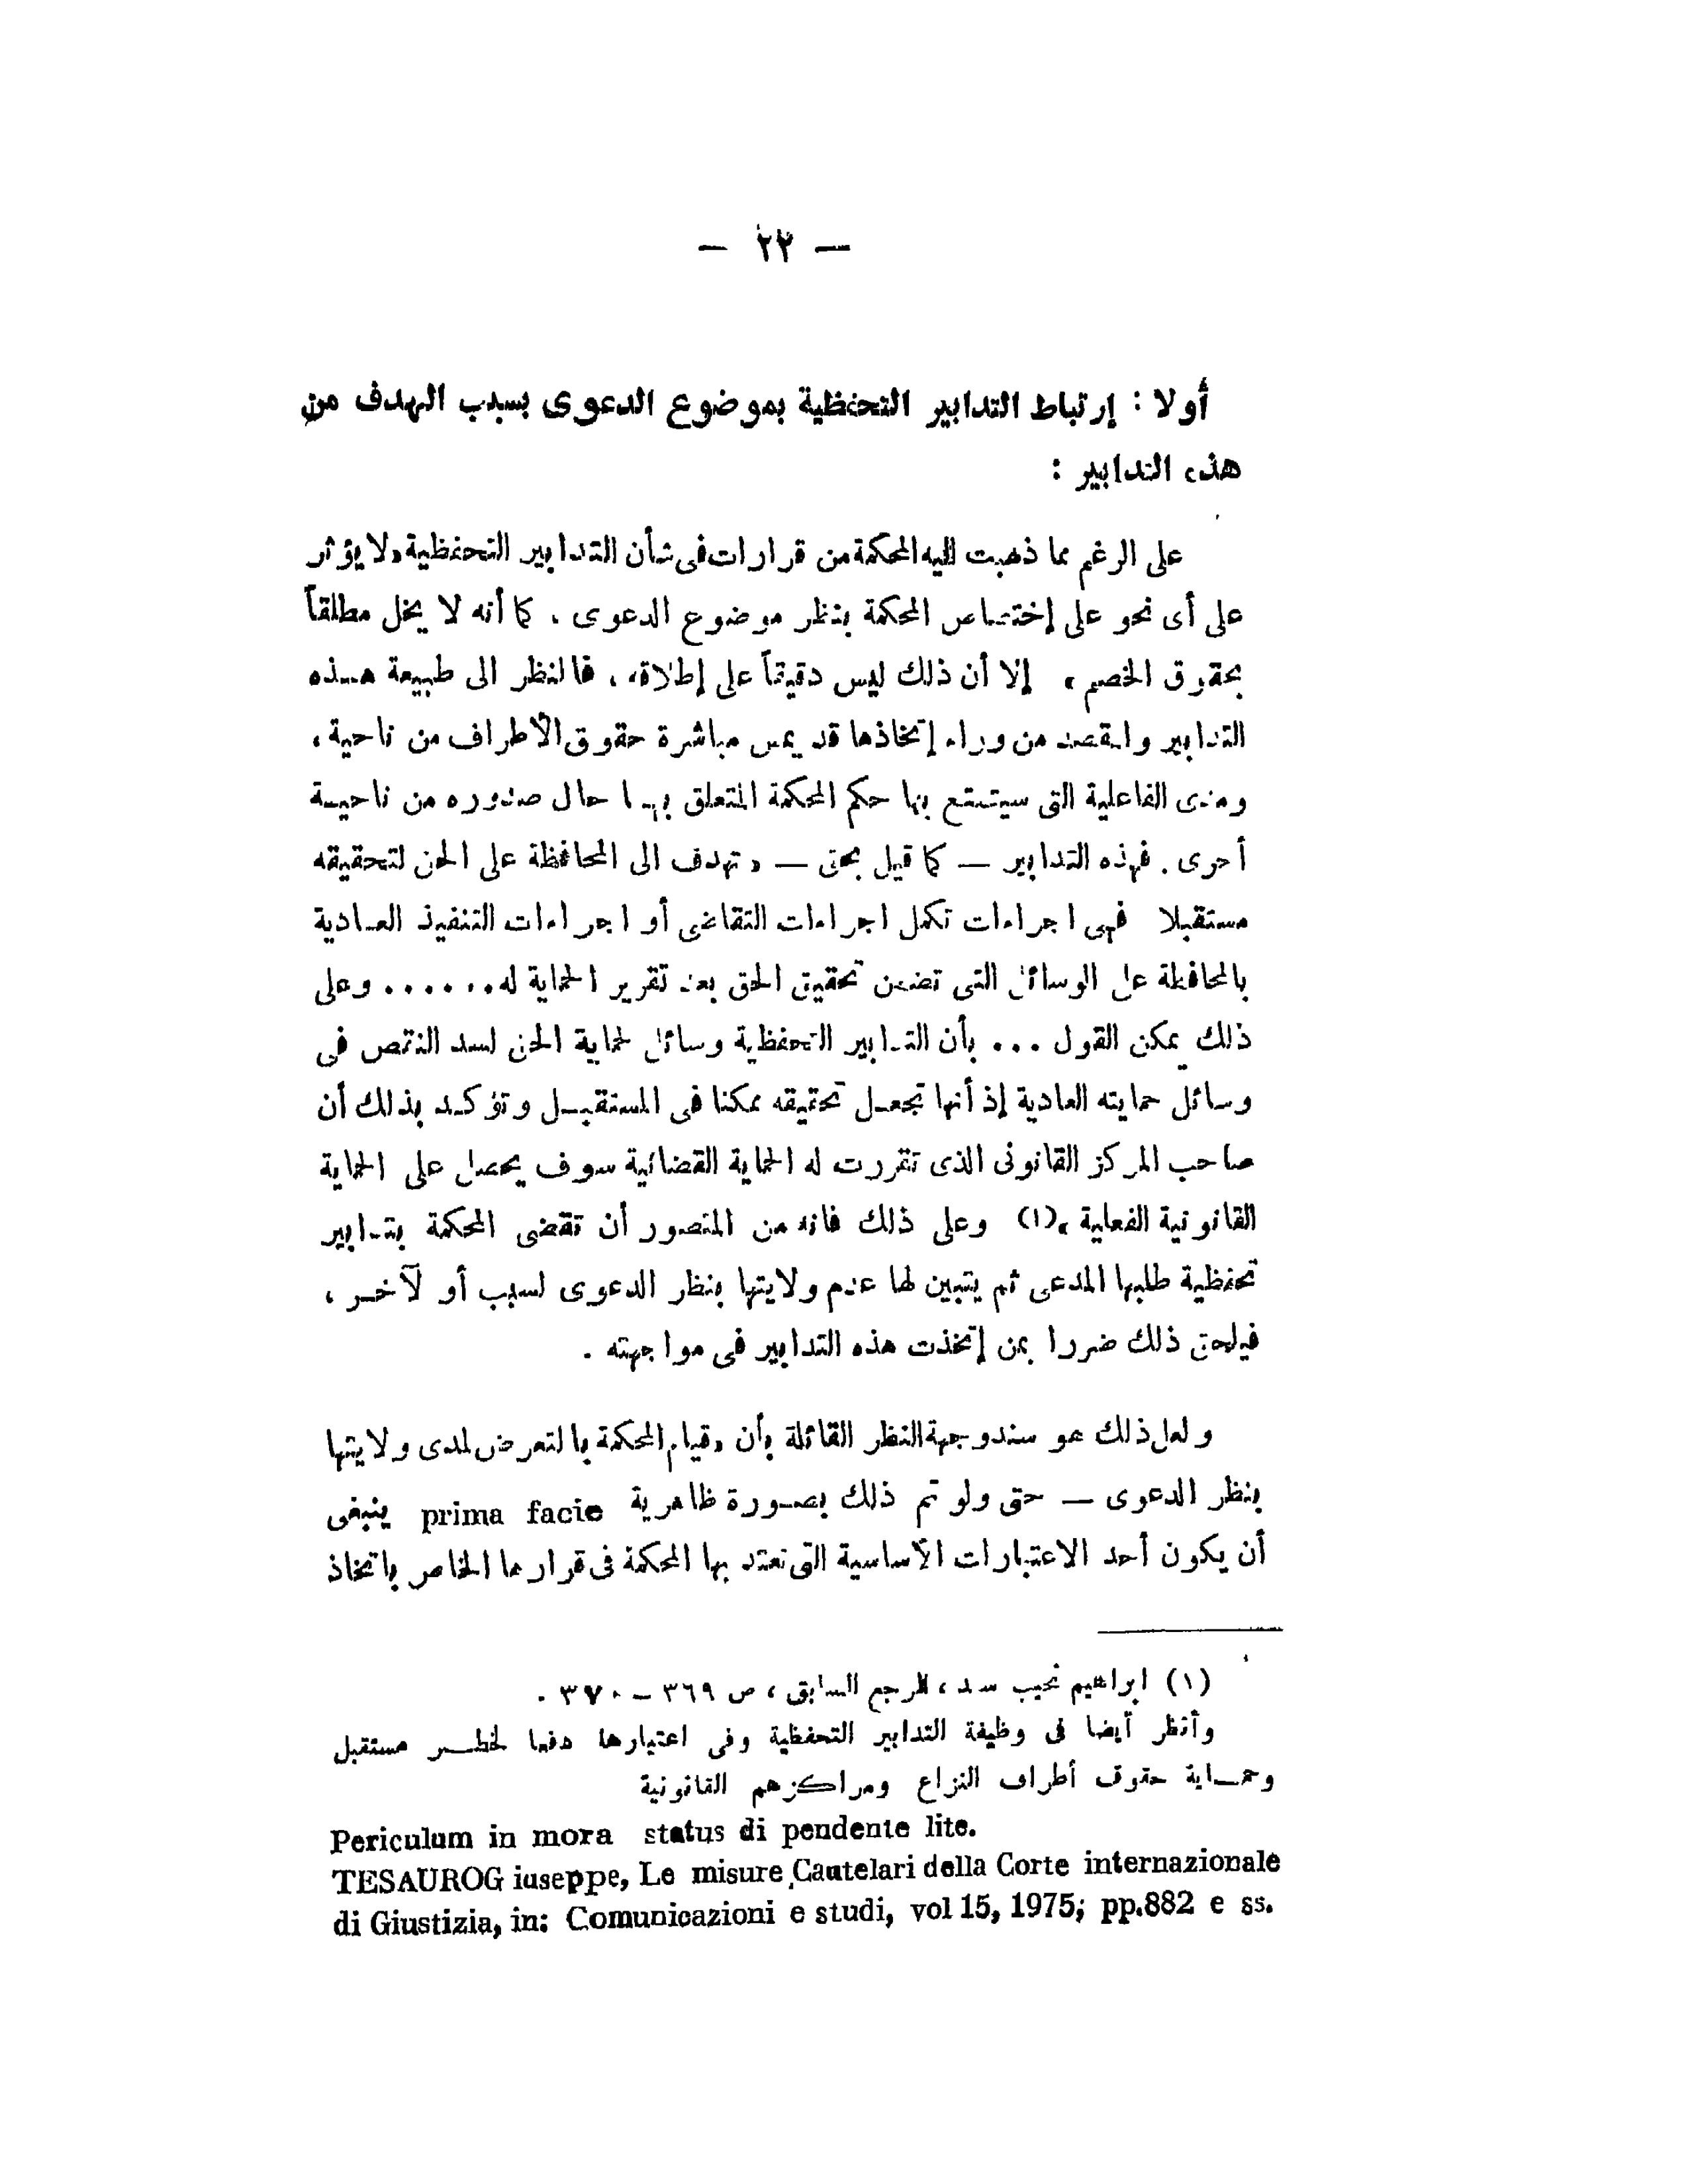 — ٢٢ —
أولا : إرتباط التدابير التحفظية بموضوع الدعوى بسبب الهدف من
هذه التدابير :
على الرغم مما ذهبت إليه المحكمة من قرارات فى شأن التدابير التحفظية «لا يؤثر
على أى نحو على إختصاص المحكمة بنظر موضوع الدعوى . كما أنه لا يخل مطلقاً
بحقوق الخصم » إلا أن ذلك ليس دقيقاً على إطلاقه ، فالنظر الى طبيعة هـذه
التدابير والقصد من وراء إتخاذها قد يمس مباشرة حقوق الأطراف من ناحية ،
ومدى الفاعلية التى سيتمتع بها حكم المحكمة المتعلق بهـا حال صدوره من ناحيـة
أخرى . فهذه التدابير — كما قيل بحق — « تهدف الى المحافظة على الحق لتحقيقه
مستقبلا فهى اجراءات تكمل اجراءات التقاضى أو اجراءات التنفيذ العـادية
بالمحافظة على الوسائل التى تضمن تحقيق الحق بعد تقرير الحماية له ...... وعلى
ذلك يمكن القول ... بأن التدابير التحفظية وسائل لحماية الحق لسد النقص فى
وسائل حمايته العادية إذ أنها تجعـل تحقيقه ممكنا فى المستقبـل وتؤكـد بذلك أن
صاحب المركز القانونى الذى تقررت له الحماية القضائية سوف يحصل على الحماية
القانونية الفعلية »(١) وعلى ذلك فانه من المتصور أن تقضى المحكمة بتدابير
تحفظية طلبها المدعى ثم يتبين لها عدم ولايتها بنظر الدعوى لسبب أو لآخـر ،
فيلحق ذلك ضررا بمن إتخذت هذه التدابير فى مواجهته .
ولعل ذلك هو سند وجهة النظر القائلة بأن «قيام المحكمة بالتعرض لمدى ولايتها
بنظر الدعوى — حتى ولو تم ذلك بصـورة ظاهرية prima facie ينبغى
أن يكون أحد الاعتبارات الأساسية التى تعتد بها المحكمة فى قرارها الخاص باتخاذ
(١) ابراهيم نجيب سعد ، المرجع السابق ، ص ٣٦٩ — ٣٧٠ .
وأنظر أيضا فى وظيفة التدابير التحفظية وفى اعتبارها دفعا لخطـر مستقبل
وحمـاية حقوق أطراف النزاع ومراكزهم القانونية
Periculum in mora status di pendente lite.
TESAUROG iuseppe, Le misure Cautelari della Corte internazionale
di Giustizia, in: Comunicazioni e studi, vol 15, 1975; pp.882 e ss.